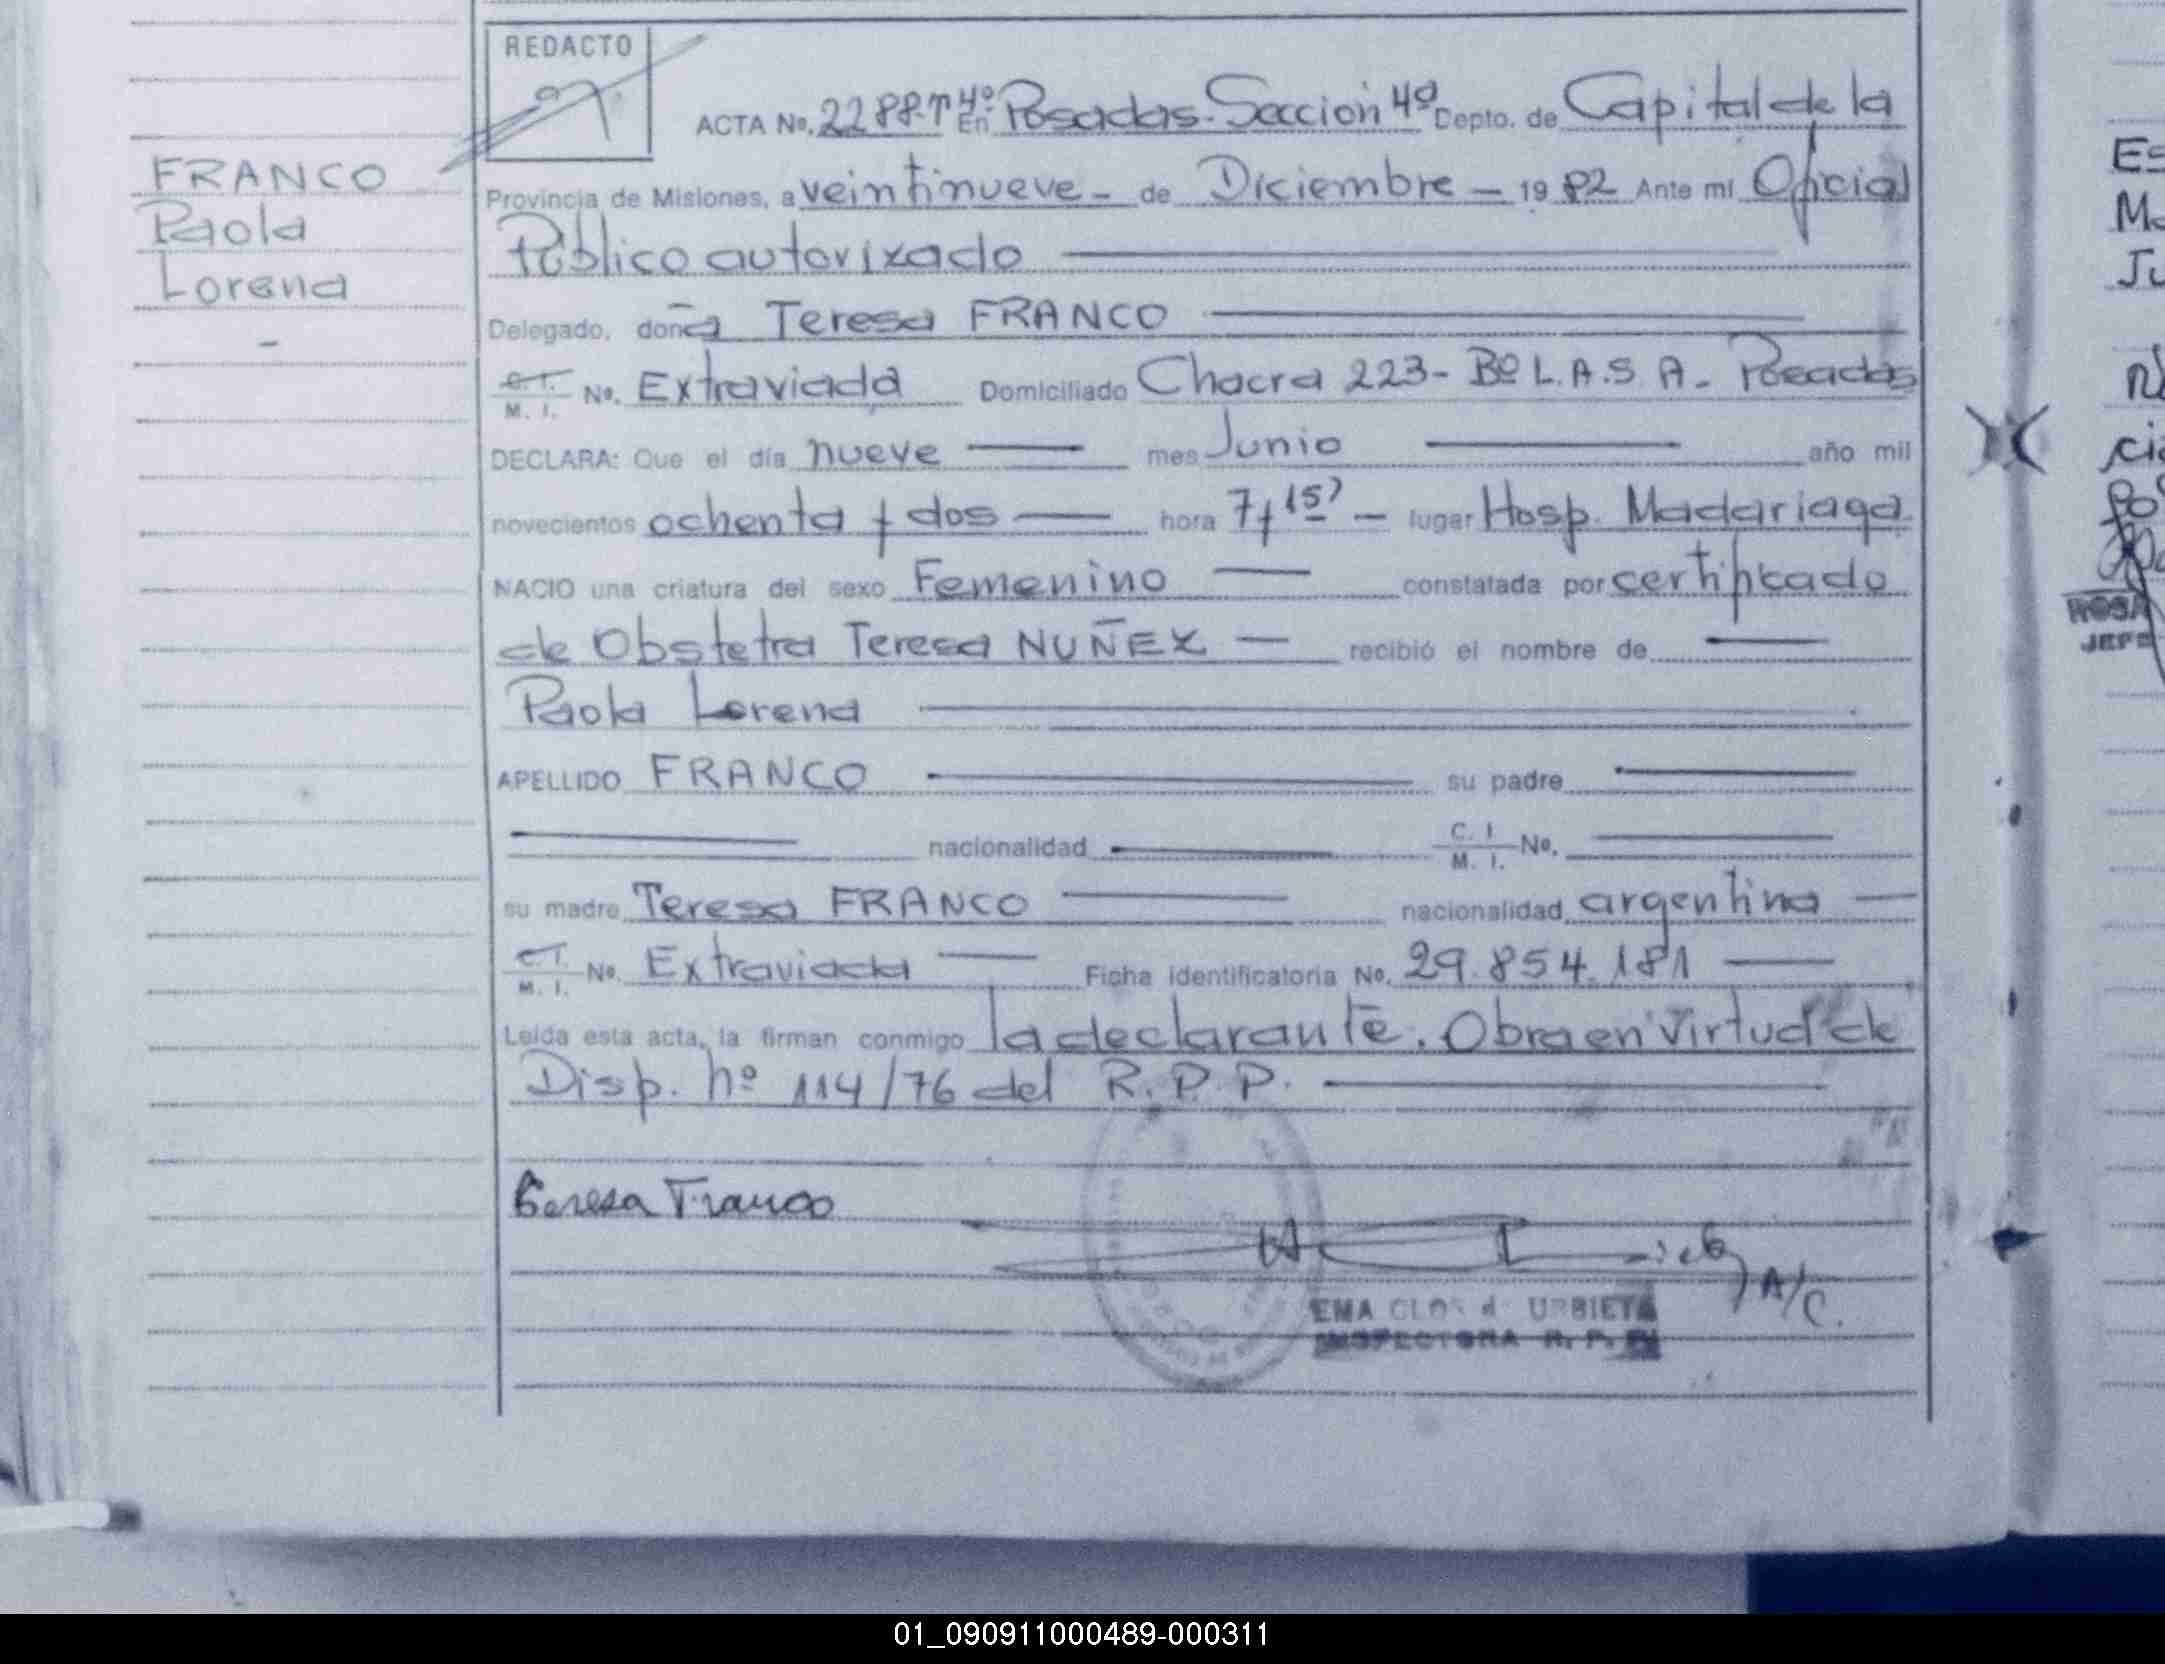 REDACTO
ACTA No. 2288. Tº 4º En Posadas. Seccion 4º Depto. de Capital de la
FRANCO
Paola
Lorena
Provincia de Misiones, a veintinueve - de Diciembre - 1982 Ante mí Oficial
Público autorizado
Delegado, doña Teresa FRANCO
C. I. M. I. No. Extraviada Domiciliado Chacra 223 - Bº L.A.S.A. - Posadas
DECLARA: Que el día nueve mes Junio año mil
novecientos ochenta y dos hora 7 y 15' - lugar Hosp. Madariaga
NACIO una criatura del sexo Femenino constatada por certificado
de Obstetra Teresa NUÑEZ - recibió el nombre de
Paola Lorena
APELLIDO FRANCO su padre
nacionalidad C. I. M. I. No.
su madre Teresa FRANCO nacionalidad argentina
C. I. M. I. No. Extraviada Ficha identificatoria No. 29.854.181
Leída esta acta, la firman conmigo la declarante. Obra en virtud de
Disp. nº 114/76 del R.P.P.
Teresa Franco
A/C.
EMA CLOS de URBIETA
INSPECTORA R. P. P.
Es
Ju
ROSA
JEFE
01_090911000489-000311